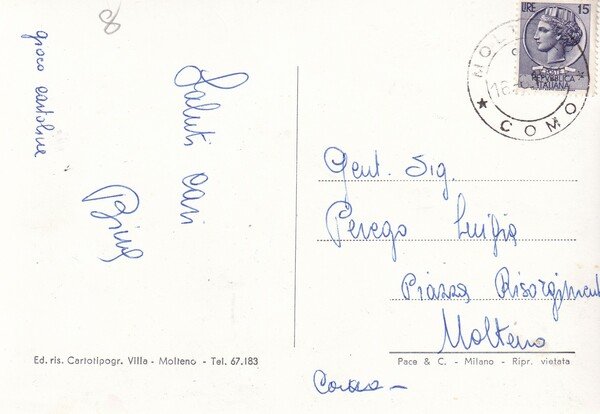 8
gioco cartoline
Saluti cari
Bina
LIRE 15
REPVBBLICA
ITALIANA
COMO
Gent. Sig.
Perego Luigia
Piazza Risorgiment
Molteno
Como
Ed. ris. Cartotipogr. Villa - Molteno - Tel. 67.183
Pace & C. - Milano - Ripr. vietata